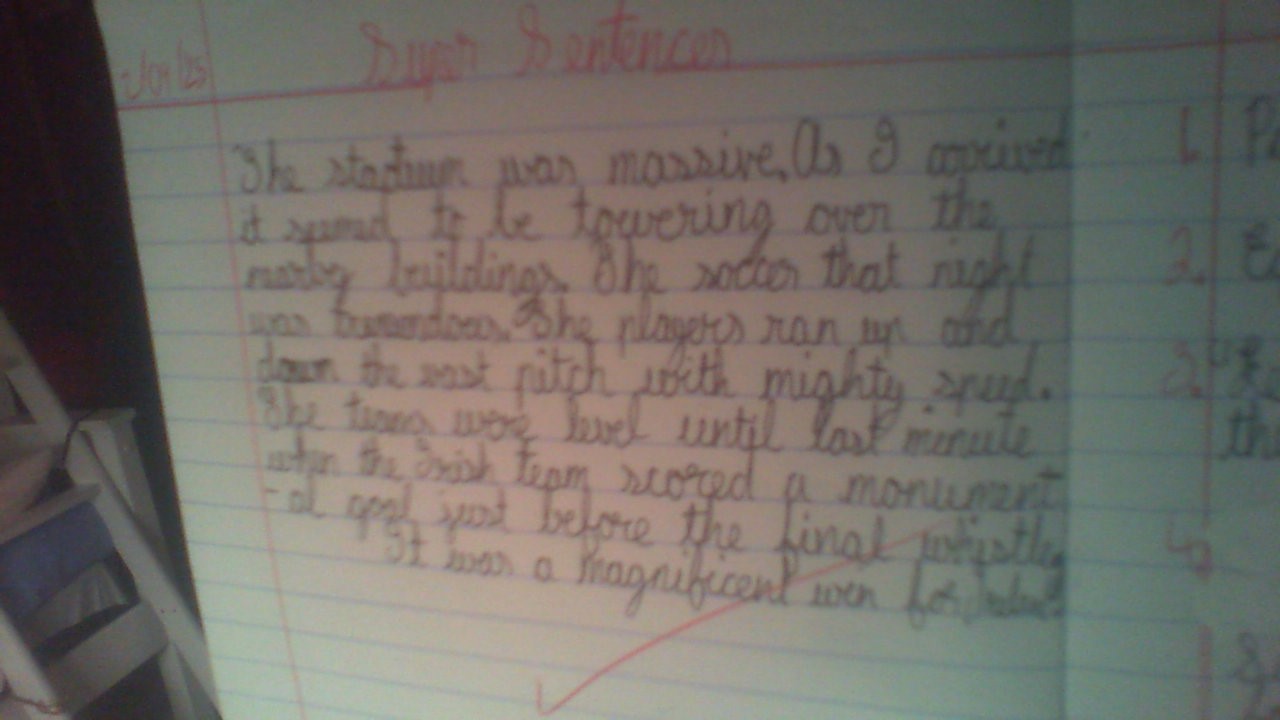 Super Sentences
The stadium was massive. As I arrived
it seemed to be towering over the
nearby buildings. The soccer that night
was tremendous. The players ran up and
down the vast pitch with mighty speed.
The teams were level until last minute
when the Irish team scored a monument
-al goal just before the final whistle.
It was a magnificent win for
1.
2.
3.
the
4.